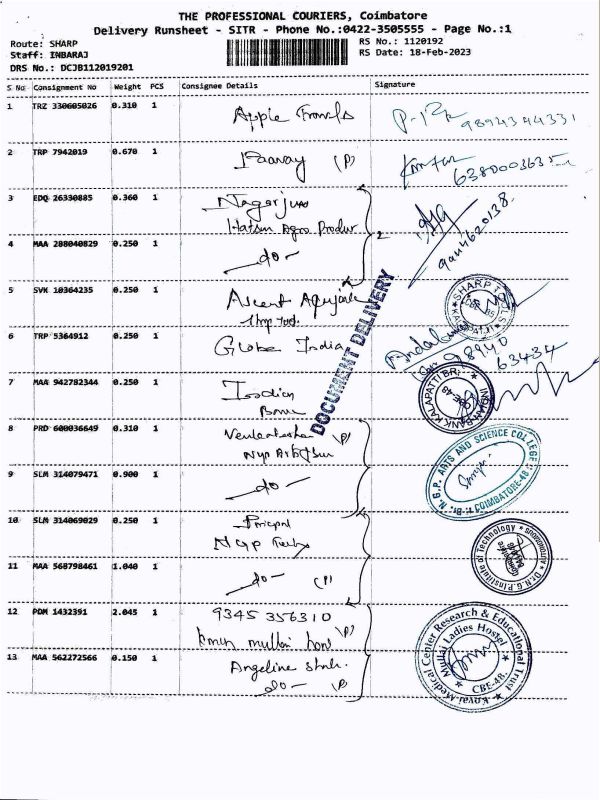 THE PROFESSIONAL COURIERS, Coimbatore
Delivery Runsheet - SITR - Phone No.:0422-3505555 - Page No.:1
Route: SHARP
Staff: INBARAJ
DRS No.: DCJB112019201
RS No.: 1120192
RS Date: 18-Feb-2023
S No Consignment No Weight PCS Consignee Details Signature
1 TRZ 330605026 0.310 1 Apple
9894344331
2 TRP 7942019 0.670 1 (P)
6380003635
3 EDQ 26330885 0.360 1 Nagarjuna
Hatsun Agro Produr
4 MAA 288040829 0.250 1 -do- 2
DOCUMENT DELIVERY
5 SVK 10364235 0.250 1 Ascent
SHARP
6 TRP 5364912 0.250 1 Globe India
98940
63434
7 MAA 942782344 0.250 1 Indian
INDIAN BANK KALAPATTI BR.
CBE-48
8 PRD 600036649 0.310 1 Venkatesha (P)
9 SLM 314079471 0.900 1 -do-
N.G.P. ARTS AND SCIENCE COLLEGE
COIMBATORE-48
10 SLM 314069029 0.250 1
NGP
11 MAA 568798461 1.040 1 -do- (P)
Dr.N.G.P.Institute of Technology
12 PDM 1432391 2.045 1 9345 356310
kmch mullai (P)
13 MAA 562272566 0.150 1 Angeline
-do- (P)
Kovai Medical Center Research & Educational Trust
Mullai Ladies Hostel
CBE-48.